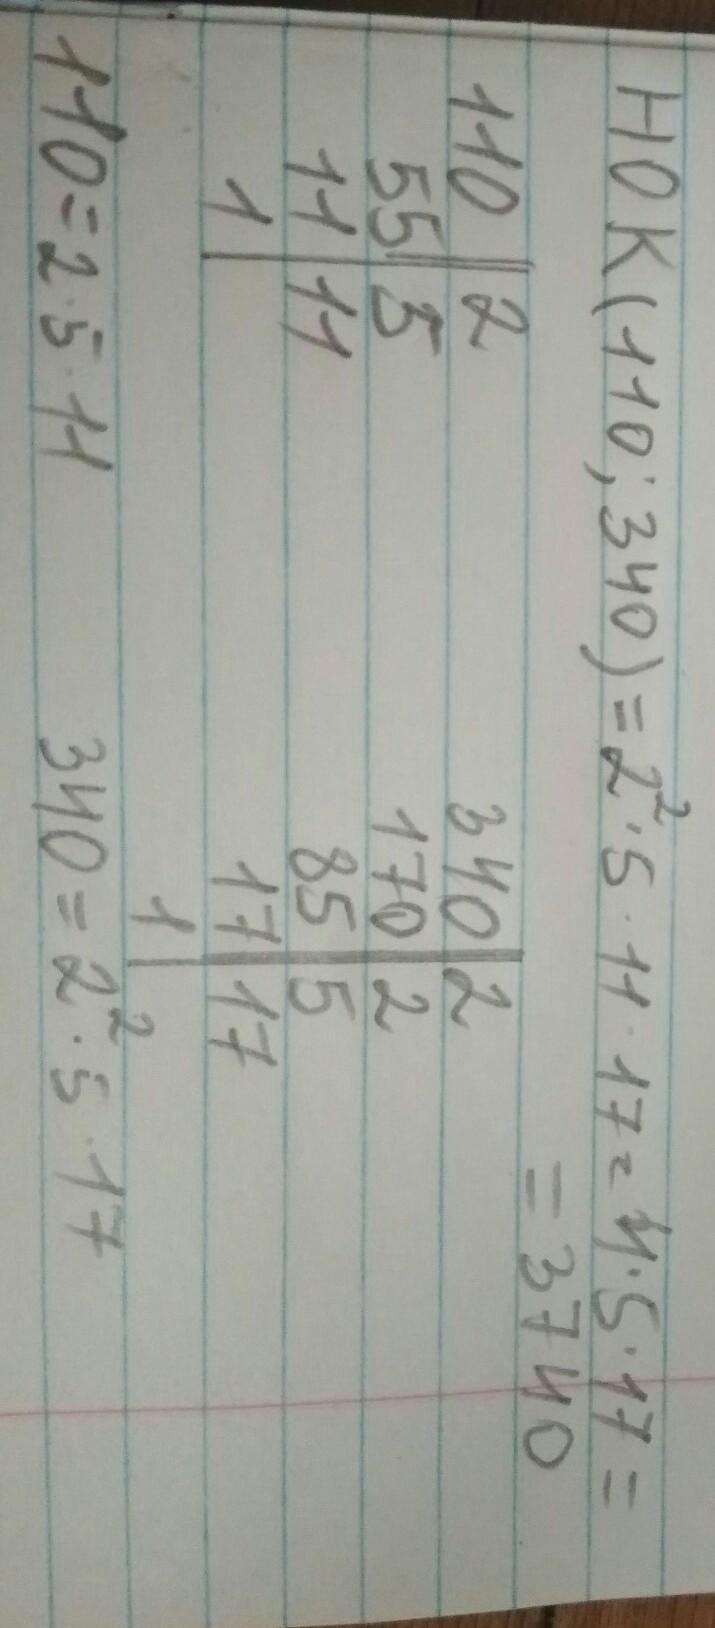 НОК(110;340)=2²·5·11·17=4·5·17=
=3740
110|2 340|2
55|5 170|2
11|11 85|5
1| 17|17
1|
110=2·5·11 340=2²·5·17